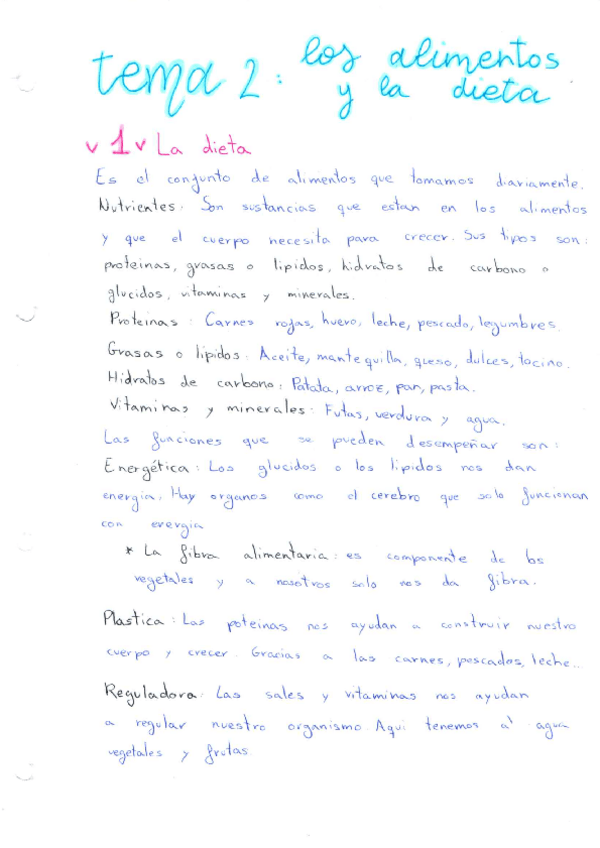 tema 2: los alimentos
y la dieta
v 1 v La dieta
Es el conjunto de alimentos que tomamos diariamente.
Nutrientes: Son sustancias que estan en los alimentos
y que el cuerpo necesita para crecer. Sus tipos son:
proteinas, grasas o lipidos, hidratos de carbono o
glucidos, vitaminas y minerales.
Proteinas: Carnes rojas, huevo, leche, pescado, legumbres.
Grasas o lipidos: Aceite, mantequilla, queso, dulces, tocino.
Hidratos de carbono: Patata, arroz, pan, pasta.
Vitaminas y minerales: Futas, verdura y agua.
Las funciones que se pueden desempeñar son:
Energética: Los glucidos o los lipidos nos dan
energia. Hay organos como el cerebro que solo funcionan
con energia
* La fibra alimentaria: es componente de los
vegetales y a nosotros solo nos da fibra.
Plastica: Las poteinas nos ayudan a construir nuestro
cuerpo y crecer. Gracias a las carnes, pescados, leche...
Reguladora: Las sales y vitaminas nos ayudan
a regular nuestro organismo. Aqui tenemos al agua
vegetales y frutas